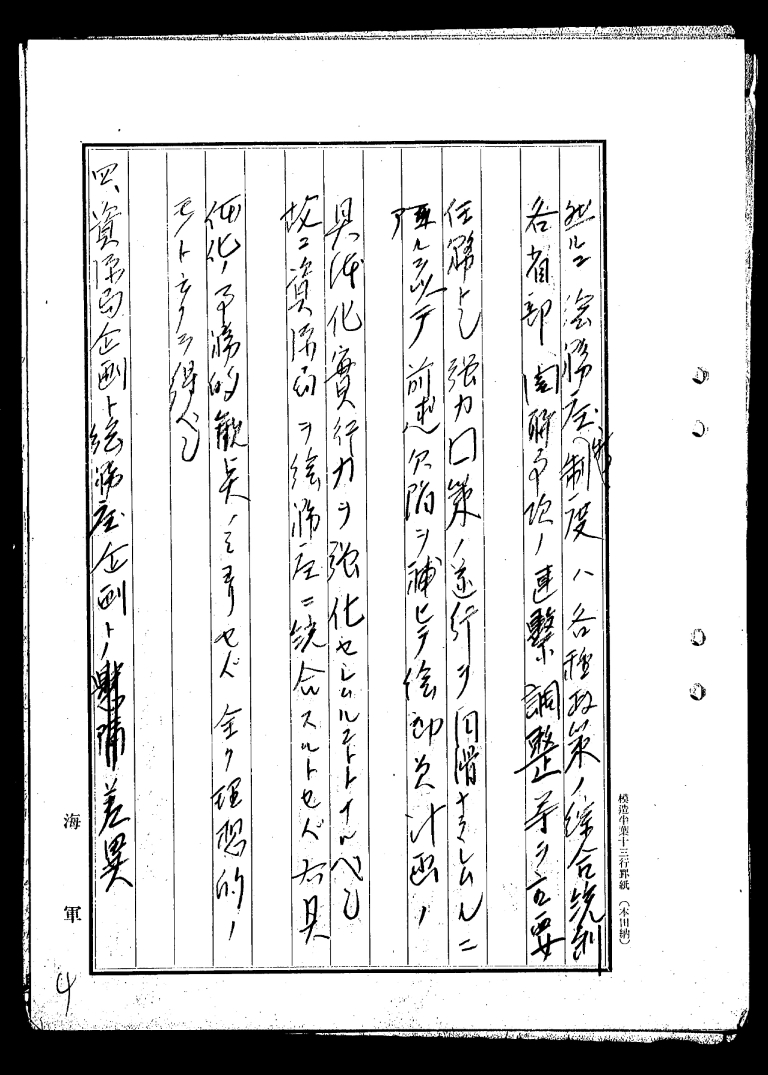 然ルニ総務庁(制)制度ハ各種政策ノ綜合統制
各省部関聯事項ノ連繋調整等ヲ主要
任務トシ強力国策ノ遂行ヲ円滑ナラシムルニ
アルヲ以テ前述欠陥ヲ補ヒテ総動員計画ノ
具体化実行力ヲ強化セシムルコトトナルベシ
故ニ資源局ヲ総務庁ニ統合スルトセバ右具
体化ノ事務的観点ノミヨリセバ全ク理想的ノ
モノト云フヲ得ベシ
四、資源局企画ト総務庁企画トノ差異
海軍
模造半葉十三行罫紙 (本田納)
4